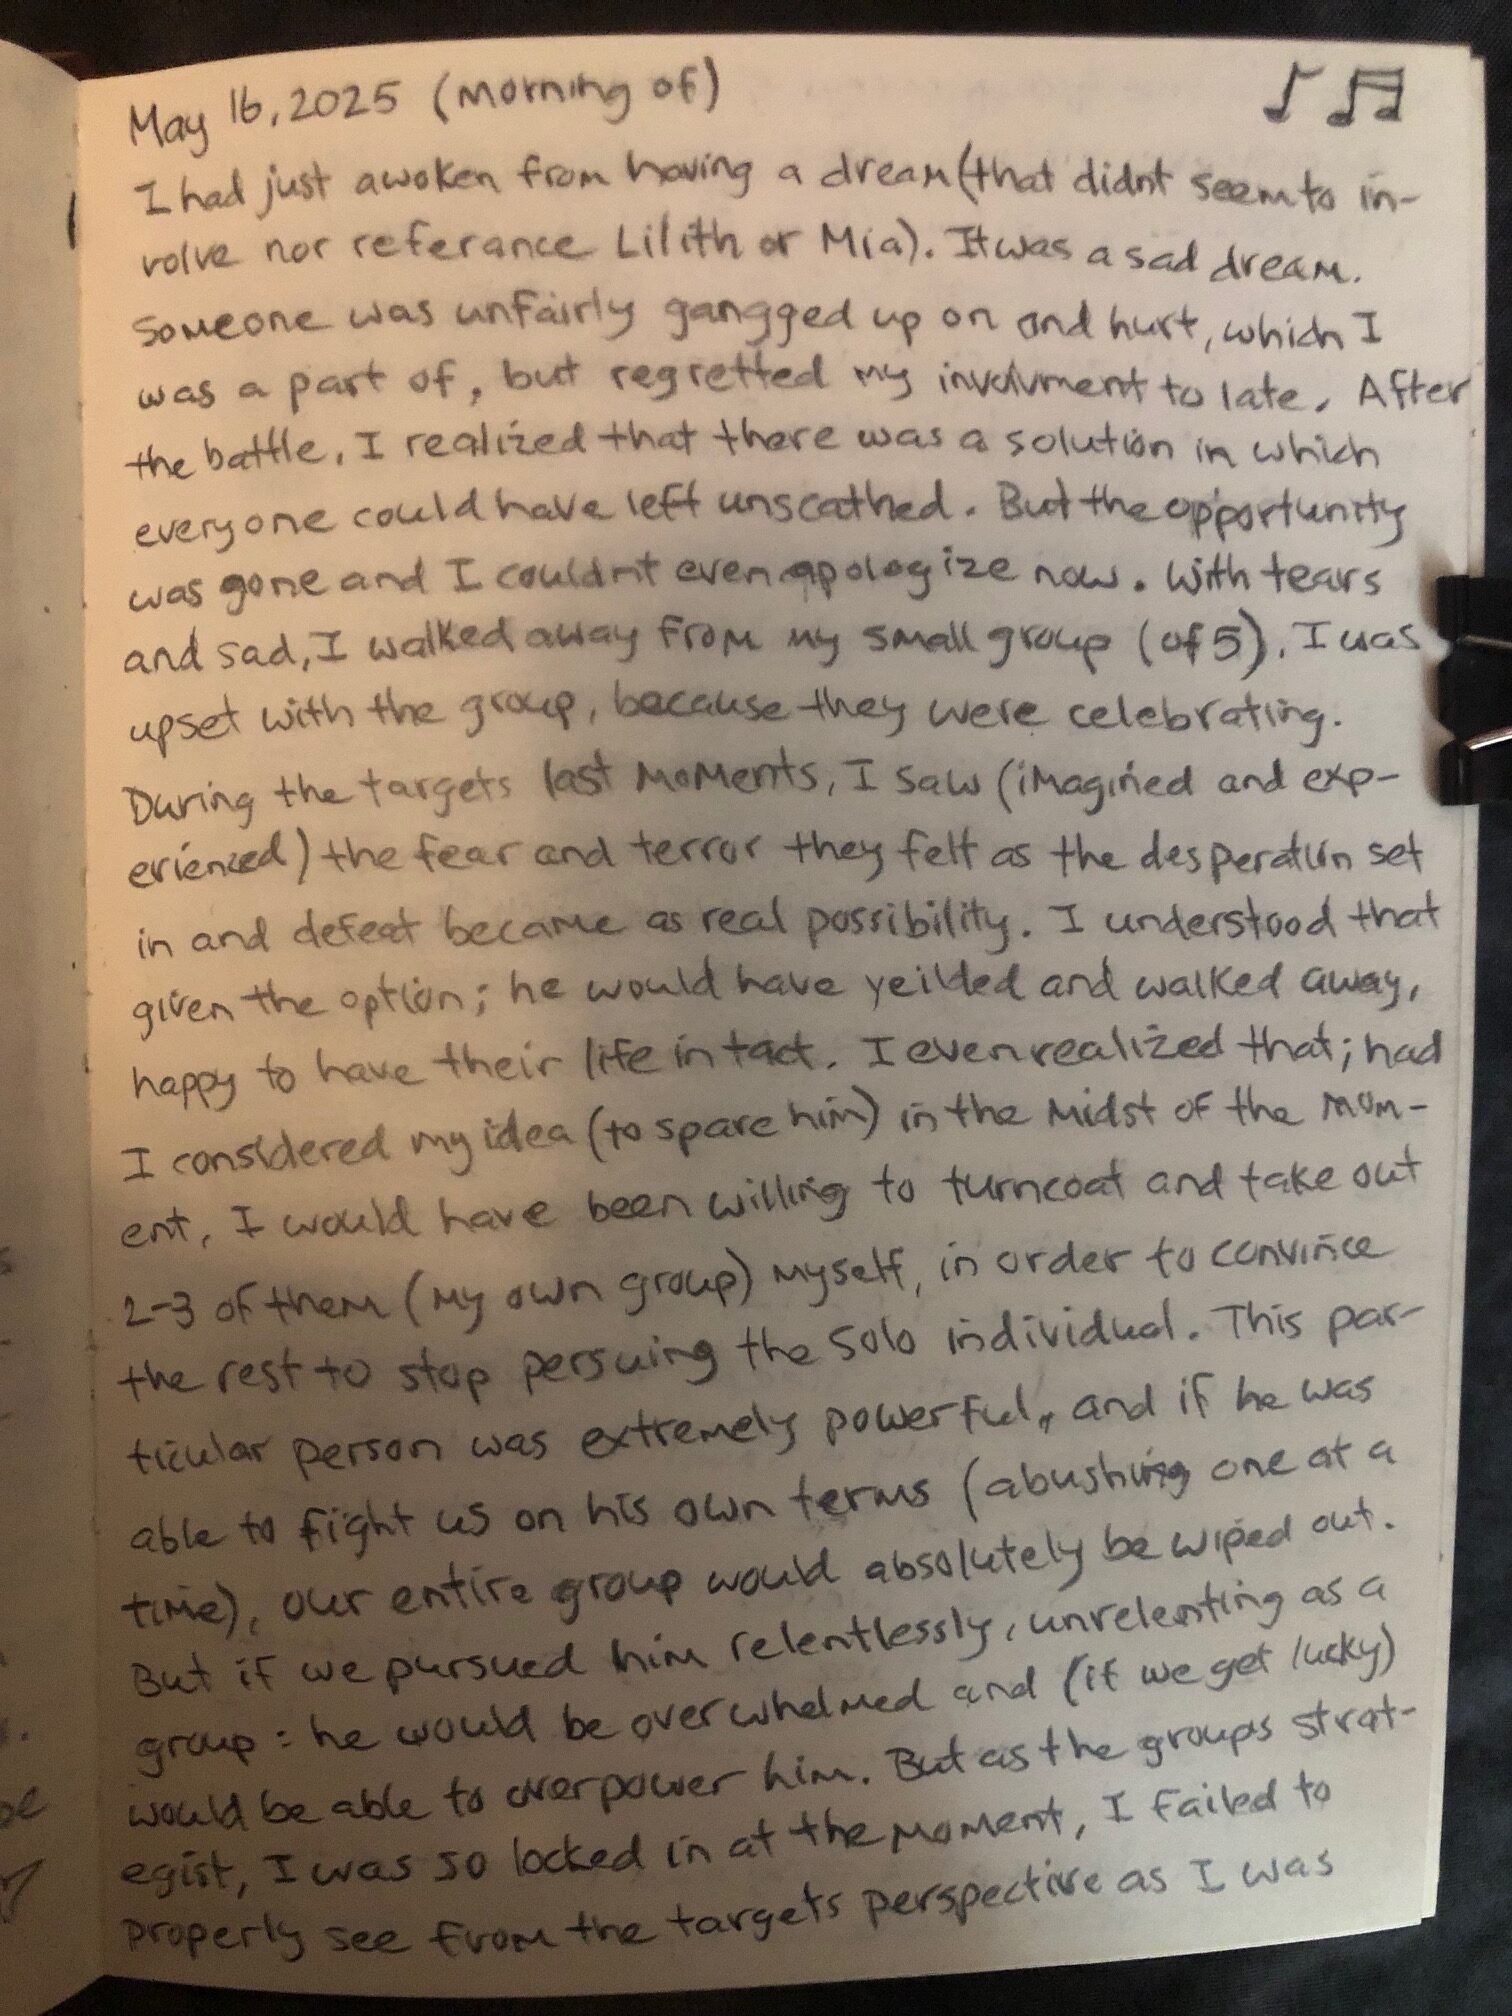 May 16, 2025 (morning of)
I had just awoken from having a dream (that didnt seem to in-
volve nor referance Lilith or Mia). It was a sad dream.
Someone was unfairly gangged up on and hurt, which I
was a part of, but regretted my involvment to late. After
the battle, I realized that there was a solution in which
everyone could have left unscathed. But the opportunity
was gone and I couldnt even apologize now. With tears
and sad, I walked away from my small group (of 5). I was
upset with the group, because they were celebrating.
During the targets last moments, I saw (imagined and exp-
erienced) the fear and terror they felt as the desperation set
in and defeat became as real possibility. I understood that
given the option; he would have yeilded and walked away,
happy to have their life in tact. I even realized that; had
I considered my idea (to spare him) in the midst of the mom-
ent, I would have been willing to turncoat and take out
2-3 of them (my own group) myself, in order to convince
the rest to stop persuing the solo individual. This par-
ticular person was extremely powerful, and if he was
able to fight us on his own terms (abushing one at a
time), our entire group would absolutely be wiped out.
But if we pursued him relentlessly, unrelenting as a
group: he would be overwhelmed and (if we get lucky)
would be able to overpower him. But as the groups strat-
egist, I was so locked in at the moment, I failed to
properly see from the targets perspective as I was